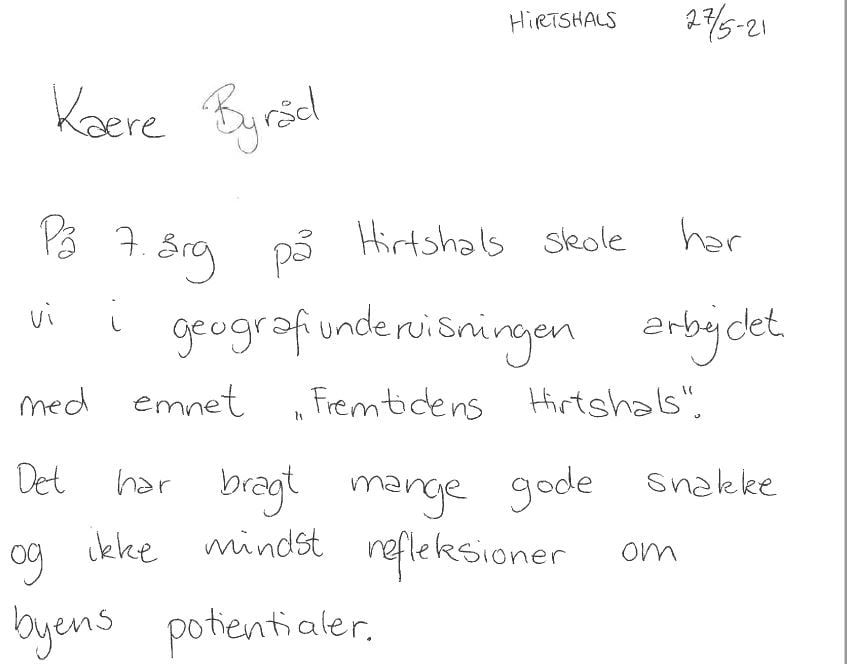 HIRTSHALS 27/5-21
Kaere Byråd
På 7. årg på Hirtshals skole har
vi i geografiundervisningen arbejdet
med emnet „Fremtidens Hirtshals".
Det har bragt mange gode snakke
og ikke mindst refleksioner om
byens potientialer.